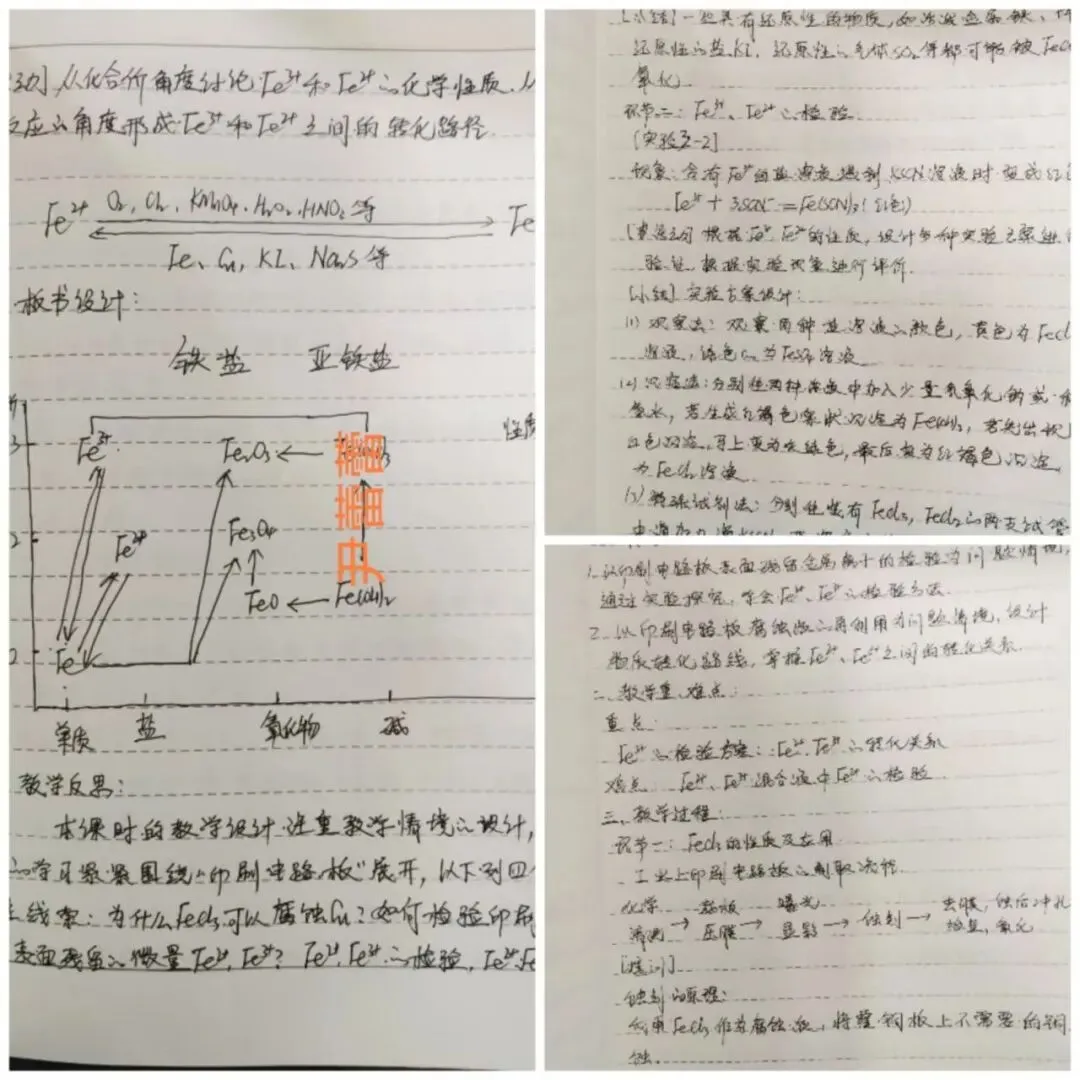 动] 从化合价角度讨论Fe³⁺和Fe²⁺的化学性质.从
反应的角度形成Fe³⁺和Fe²⁺之间的转化路径.
Fe²⁺ O₂、Cl₂、KMnO₄、H₂O₂、HNO₃等 Fe
Fe、Cu、KI、Na₂S等
板书设计:
铁盐 亚铁盐
3 Fe³⁺ Fe₂O₃ ← 性质
Fe²⁺ Fe₃O₄
2 Fe FeO ← Fe(OH)₂
尹蕾蕾
单质 盐 氧化物 碱
教学反思:
本课时的教学设计注重教学情境的设计,
的学习紧紧围绕“印刷电路板”展开,以下列四个
主线索:为什么FeCl₃可以腐蚀Cu?如何检验印刷
表面残留的微量Fe²⁺、Fe³⁺? Fe²⁺、Fe³⁺的检验,Fe²⁺、Fe
[小结] 一些具有还原性的物质,如
还原性的盐KI、还原性的气体SO₂等都可能被FeCl
氧化.
环节二: Fe³⁺、Fe²⁺的检验.
[实验3-2]
现象:含有Fe³⁺的盐溶液遇到KSCN溶液时变成红色
Fe³⁺ + 3SCN⁻ = Fe(SCN)₃ (红色)
根据Fe³⁺、Fe²⁺的性质,设计多种实验方案进行
验证,根据实验现象进行评价.
[小结] 实验方案设计:
(1) 观察法:观察两种盐溶液的颜色,黄色为FeCl
溶液,绿色的为FeCl₂溶液
(2) 沉淀法:分别往两种溶液中加入少量氢氧化钠或
氨水,若生成红褐色絮状沉淀为Fe(OH)₃,若先出现
白色沉淀,马上变为灰绿色,最后变为红褐色沉淀,
为FeCl₂溶液
(3) 特殊试剂法:分别往盛有FeCl₃、FeCl₂的两支试管
中滴加
1. 以印刷电路板表面残留金属离子的检验为问题情境,
通过实验探究,学会Fe³⁺、Fe²⁺的检验方法.
2. 以印刷电路板腐蚀液的再利用为问题情境,设计
物质转化路线,掌握Fe³⁺、Fe²⁺之间的转化关系.
二、教学重、难点:
重点:
Fe³⁺的检验方案;Fe³⁺、Fe²⁺的转化关系
难点 Fe³⁺、Fe²⁺混合液中Fe²⁺的检验
三、教学过程:
环节一: FeCl₃的性质及应用
工业上印刷电路板的制取流程.
化学 曝光 去膜,蚀后冲孔
清洗 → 压膜 → 显影 → 蚀刻 → 检查,氧化
[提问]
蚀刻的原理:
利用FeCl₃作为腐蚀液,将覆铜板上不需要的铜
蚀.